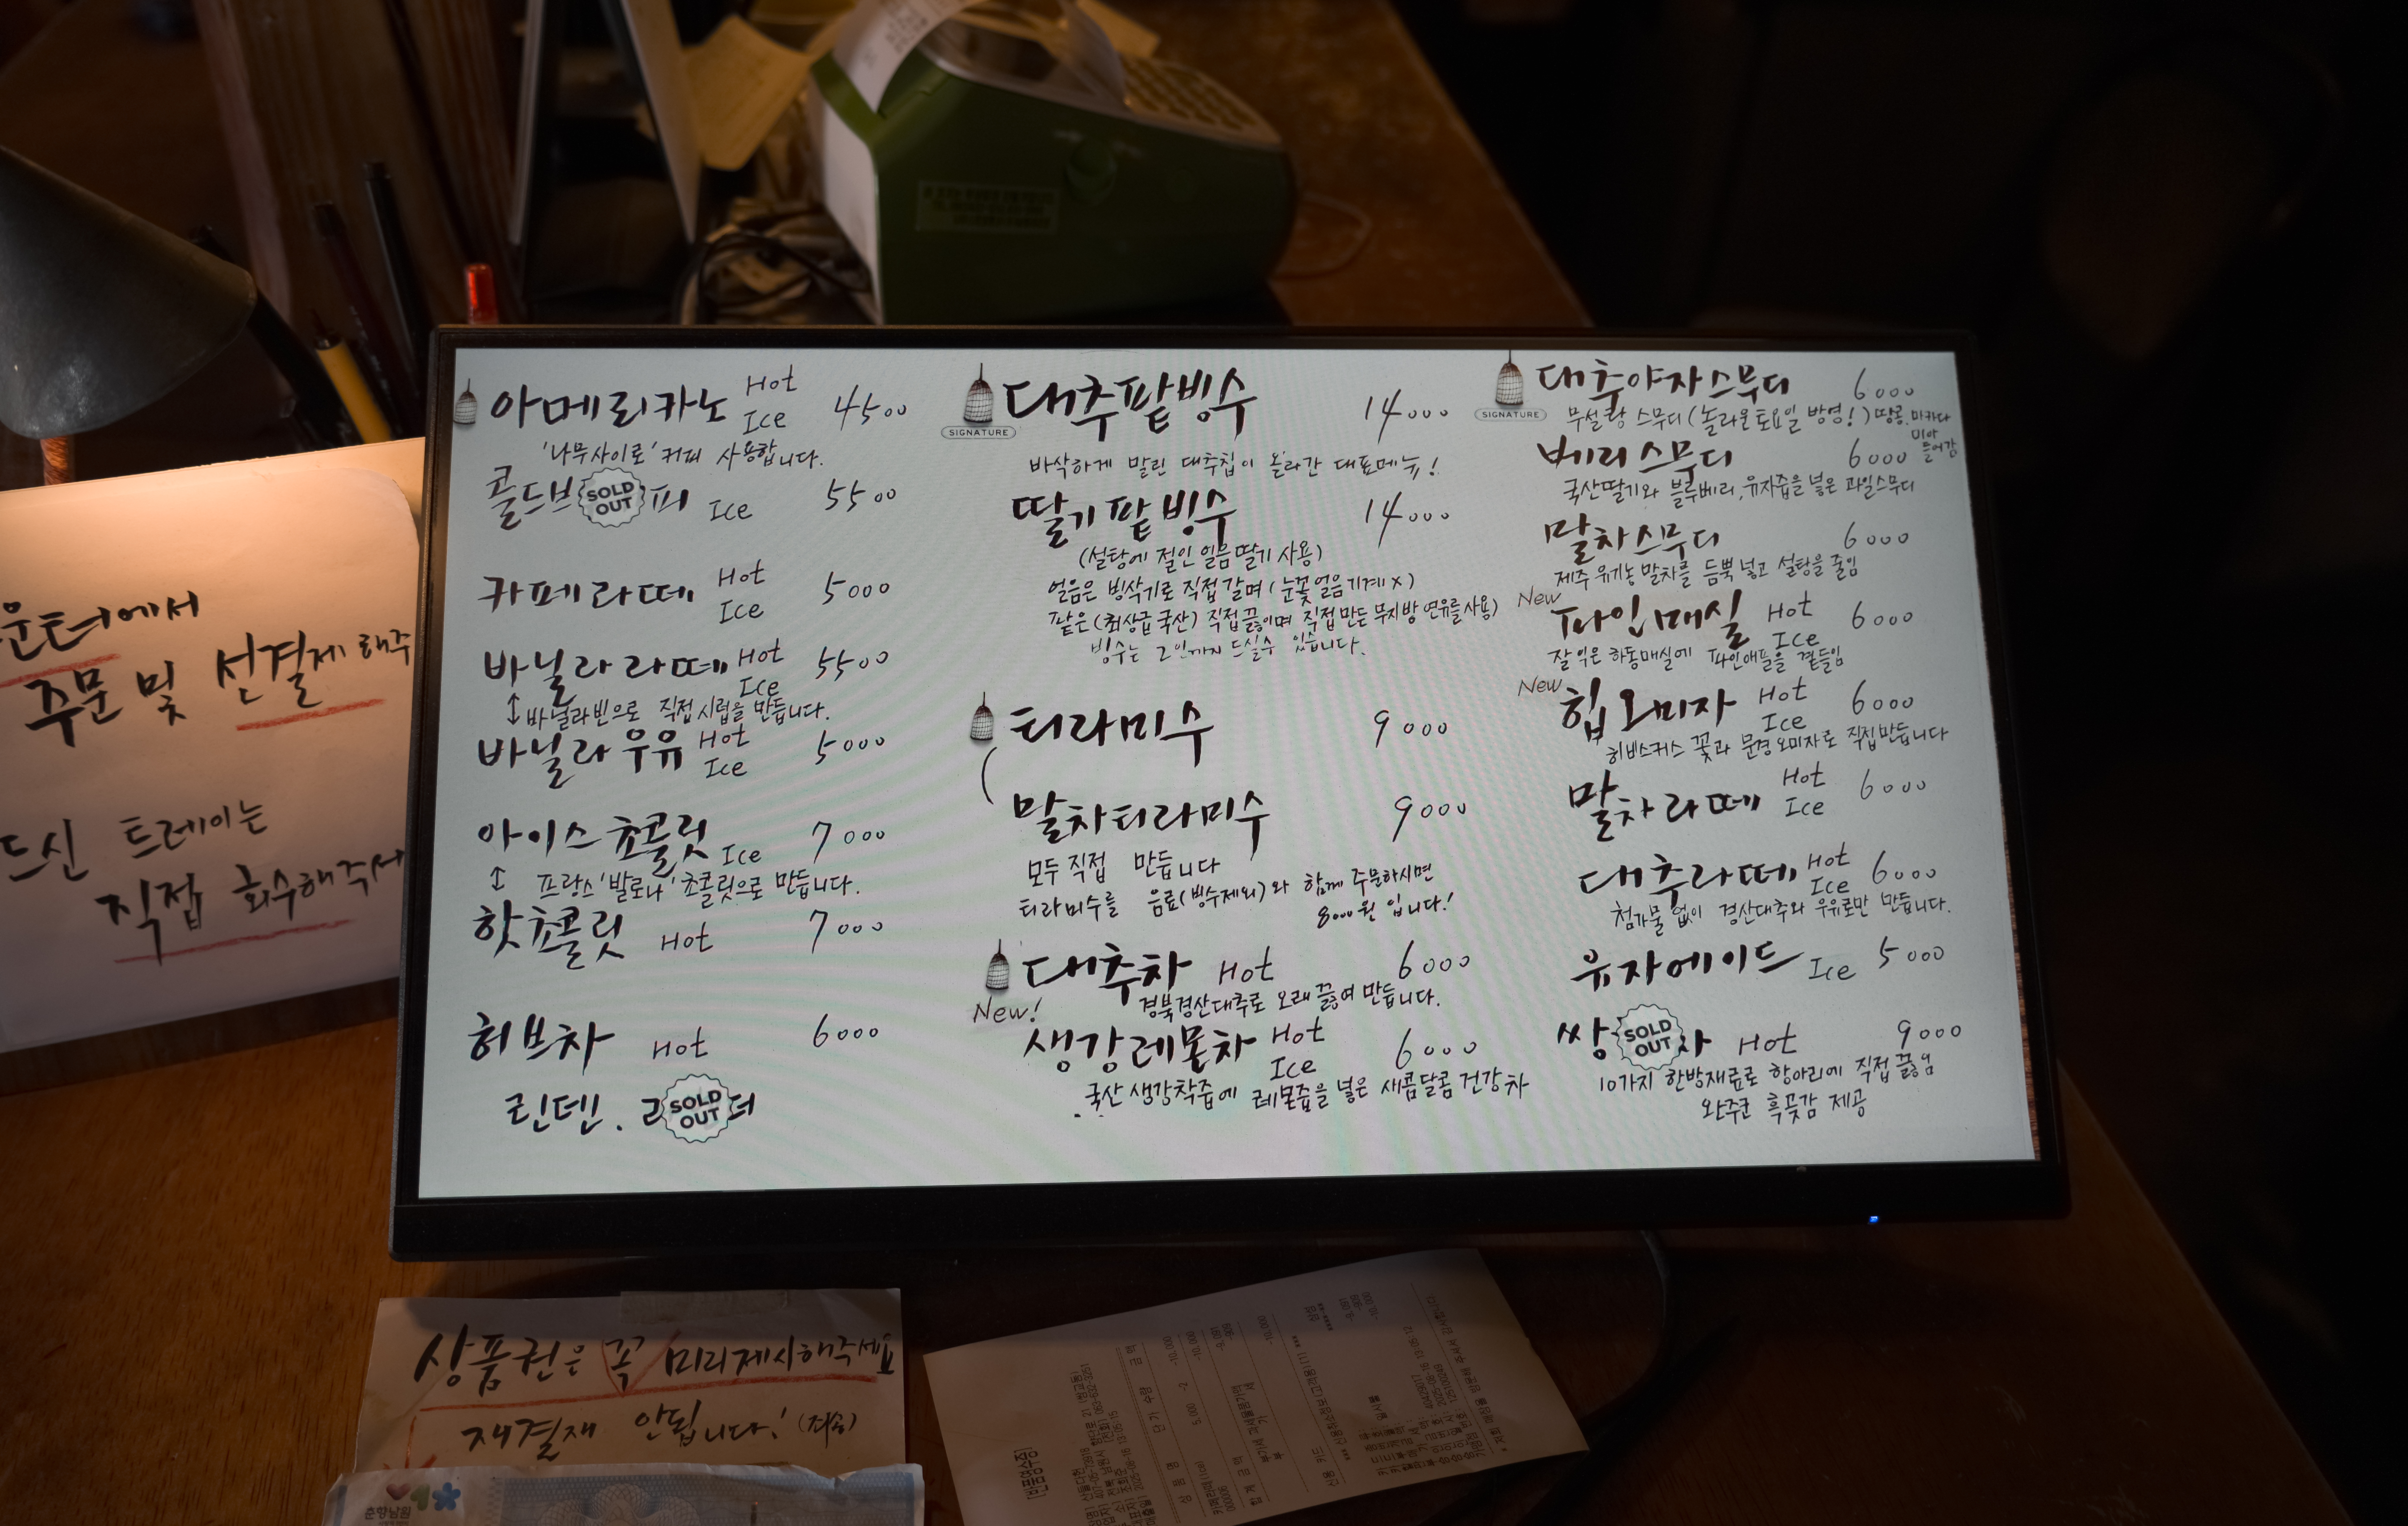 아메리카노 Hot Ice 4500
'나무사이로' 커피 사용합니다.
콜드브 SOLD OUT 피 Ice 5500
카페라떼 Hot Ice 5000
바닐라라떼 Hot Ice 5500
↑ 바닐라빈으로 직접 시럽을 만듭니다.
바닐라우유 Hot Ice 5000
아이스초콜릿 Ice 7000
↑ 프랑스 '발로나' 초콜릿으로 만듭니다.
핫초콜릿 Hot 7000
허브차 Hot 6000
린덴. SOLD OUT
SIGNATURE
대추팥빙수 14000
바삭하게 말린 대추칩이 올라간 대표메뉴!
딸기팥빙수 14000
(설탕에 절인 얼음딸기 사용)
얼음은 빙삭기로 직접 갈며 (눈꽃얼음기계 X)
팥은 (최상급 국산) 직접 끓이며 직접만든 무지방 연유를 사용)
빙수는 2인까지 드실수 있습니다.
티라미수 9000
말차티라미수 9000
모두 직접 만듭니다
티라미수를 음료(빙수제외)와 함께 주문하시면
8000원 입니다!
대추차 Hot 6000
경북경산대추로 오래 끓여 만듭니다.
New!
생강레몬차 Hot Ice 6000
국산 생강착즙에 레몬즙을 넣은 새콤달콤 건강차
SIGNATURE
대추야자스무디 6000
무설탕 스무디 (놀라운토요일 방영!) 땅콩, 마카다
미아
들어감
베리스무디 6000
국산딸기와 블루베리, 유자즙을 넣은 과일스무디
말차스무디 6000
제주 유기농 말차를 듬뿍 넣고 설탕을 줄임
New
파인매실 Hot Ice 6000
잘 익은 하동매실에 파인애플을 곁들임
New
힙오미자 Hot Ice 6000
히비스커스 꽃과 문경오미자로 직접만듭니다
말차라떼 Hot Ice 6000
대추라떼 Hot Ice 6000
첨가물 없이 경산대추와 우유로만 만듭니다.
유자에이드 Ice 5000
쌍 SOLD OUT Hot 9000
10가지 한방재료로 항아리에 직접 끓임
완주군 흑곶감 제공
운터에서
주문 및 선결제 해주
드신 트레이는
직접 회수해주세
상품권은 꼭 미리제시해주세요
재결재 안됩니다! (죄송)
춘향남원
[반품영수증]